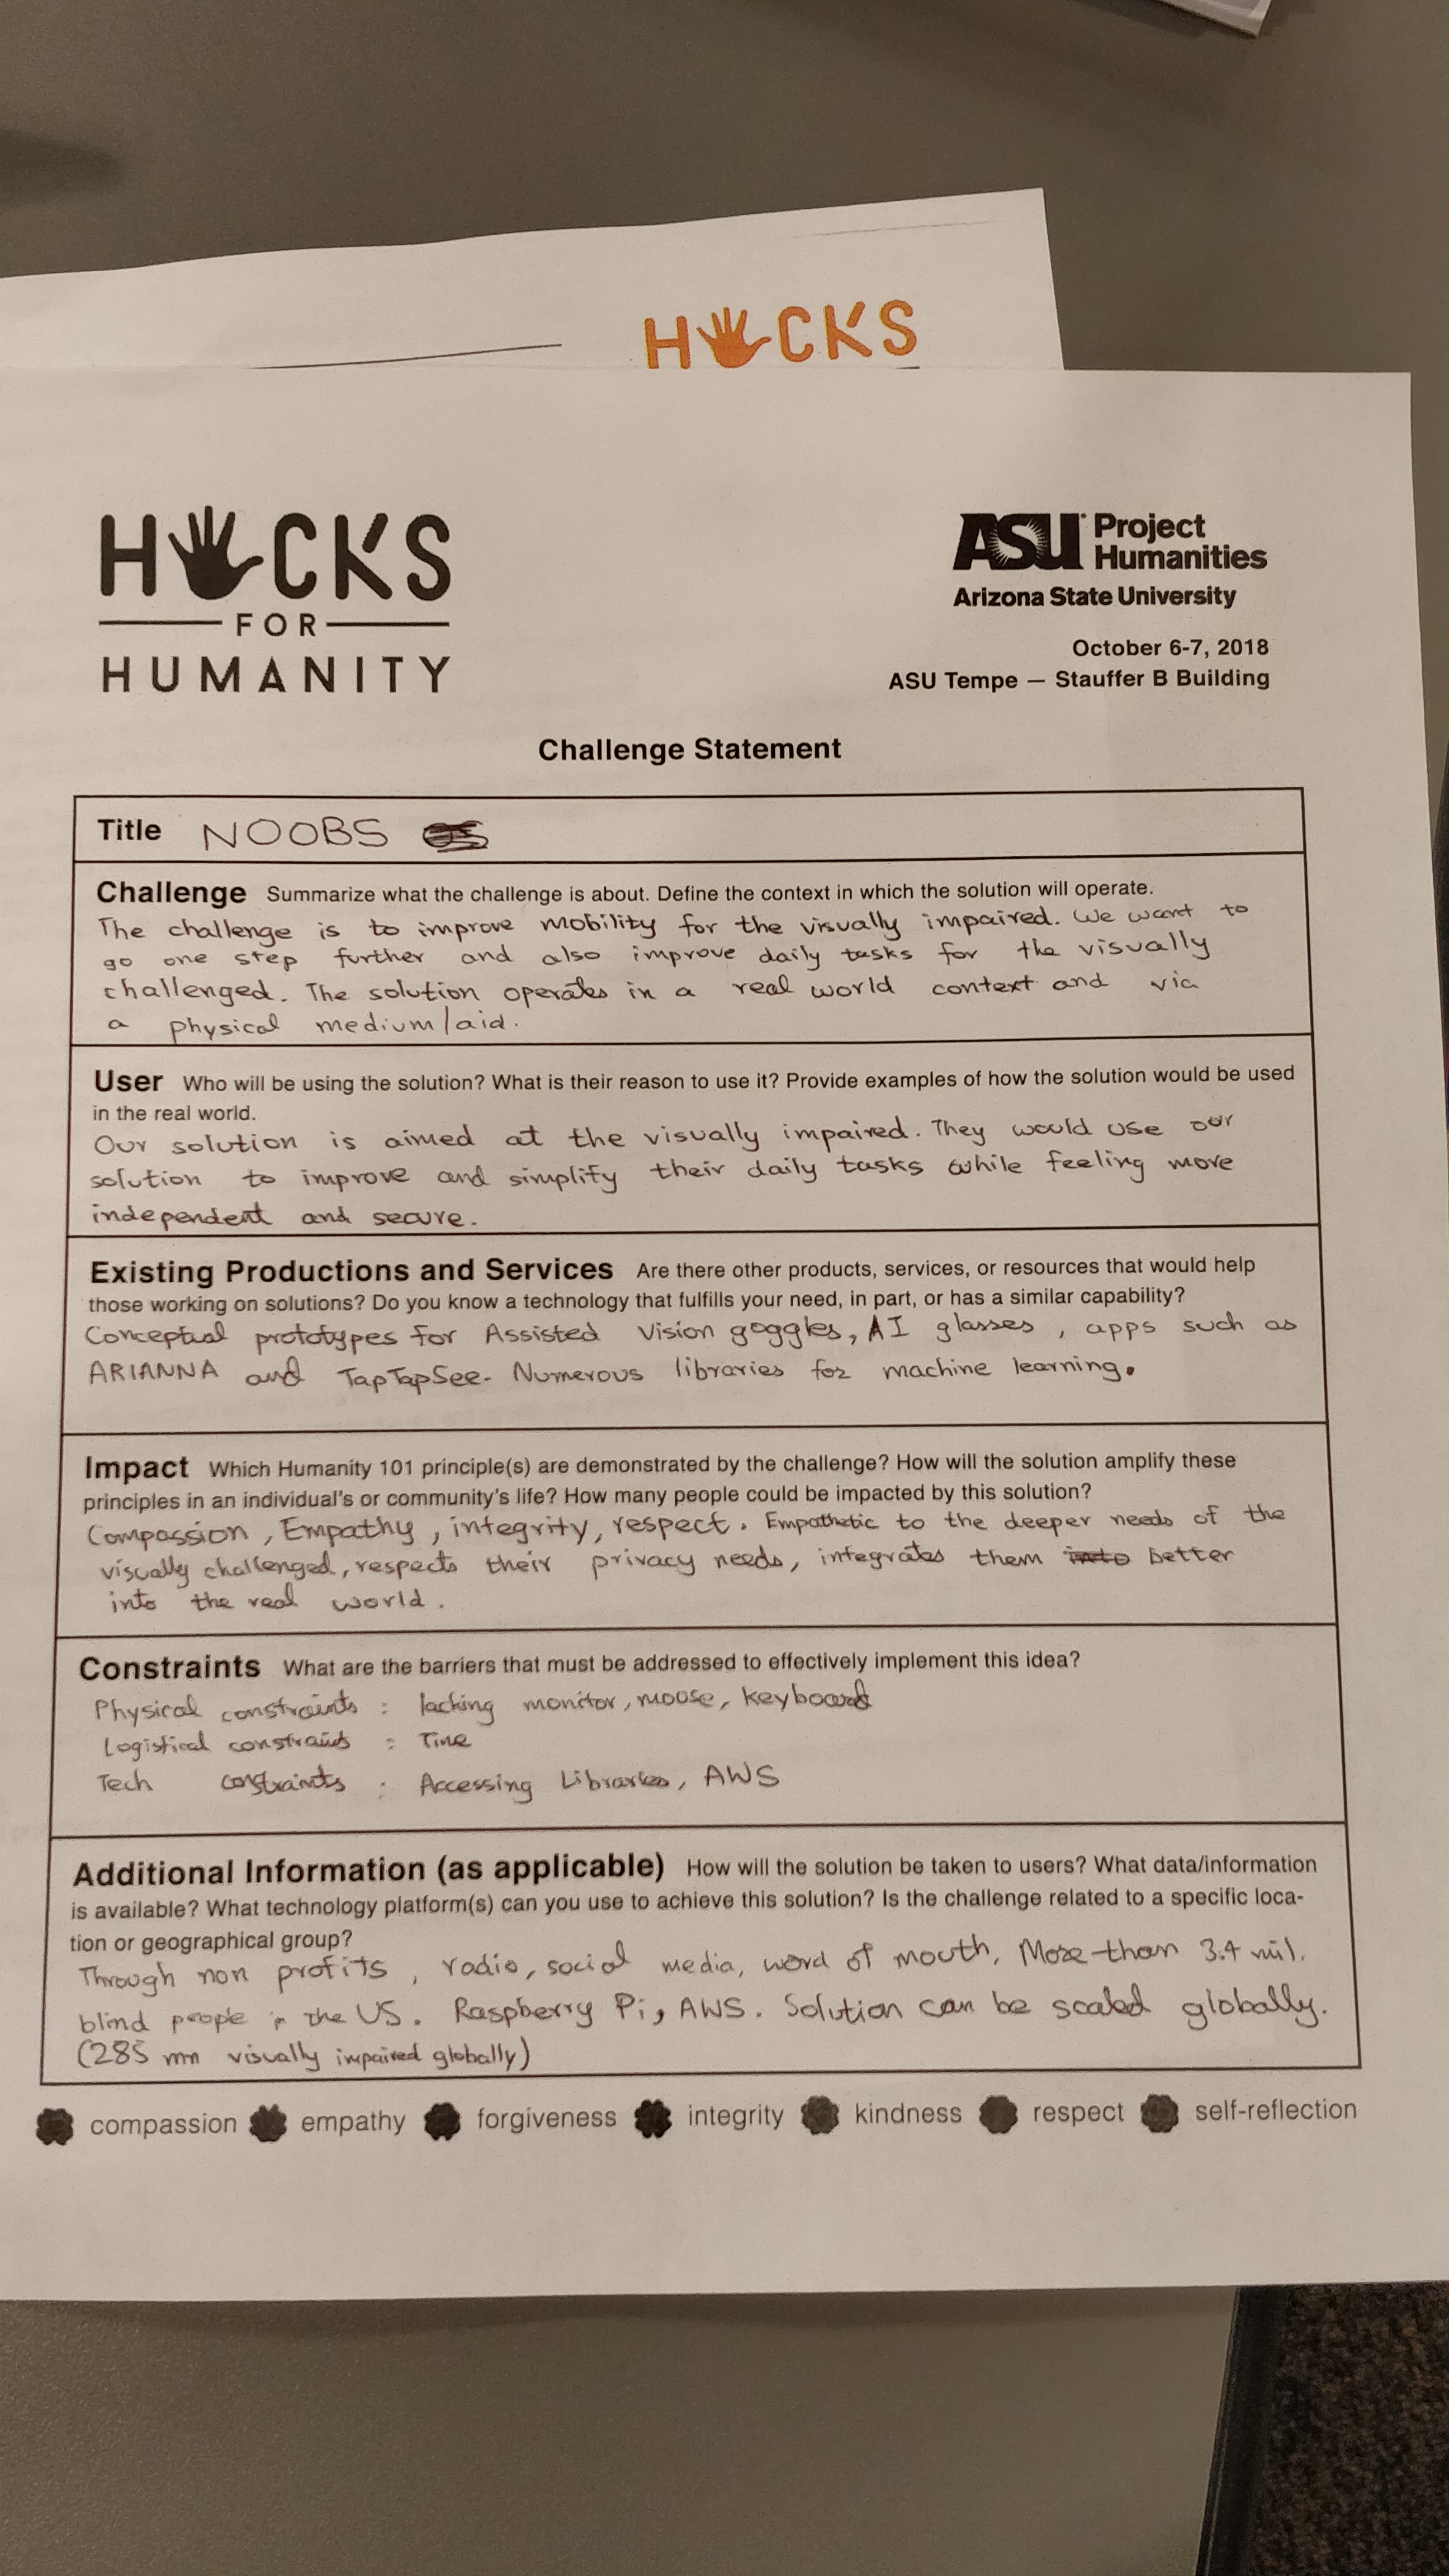 HACKS
HACKS
FOR
HUMANITY
ASU Project
Humanities
Arizona State University
October 6-7, 2018
ASU Tempe — Stauffer B Building
Challenge Statement
Title NOOBS
Challenge Summarize what the challenge is about. Define the context in which the solution will operate.
The challenge is to improve mobility for the visually impaired. We want to
go one step further and also improve daily tasks for the visually
challenged. The solution operates in a real world context and via
a physical medium/aid.
User Who will be using the solution? What is their reason to use it? Provide examples of how the solution would be used
in the real world.
Our solution is aimed at the visually impaired. They would use our
solution to improve and simplify their daily tasks while feeling more
independent and secure.
Existing Productions and Services Are there other products, services, or resources that would help
those working on solutions? Do you know a technology that fulfills your need, in part, or has a similar capability?
Conceptual prototypes for Assisted Vision goggles, AI glasses, apps such as
ARIANNA and TapTapSee. Numerous libraries for machine learning.
Impact Which Humanity 101 principle(s) are demonstrated by the challenge? How will the solution amplify these
principles in an individual's or community's life? How many people could be impacted by this solution?
Compassion, Empathy, integrity, respect. Empathetic to the deeper needs of the
visually challenged, respects their privacy needs, integrates them into better
into the real world.
Constraints What are the barriers that must be addressed to effectively implement this idea?
Physical constraints : lacking monitor, mouse, keyboard
Logistical constraints : Time
Tech constraints : Accessing Libraries, AWS
Additional Information (as applicable) How will the solution be taken to users? What data/information
is available? What technology platform(s) can you use to achieve this solution? Is the challenge related to a specific loca-
tion or geographical group?
Through non profits, radio, social media, word of mouth. More than 3.4 mil.
blind people in the US. Raspberry Pi, AWS. Solution can be scaled globally.
(285 mn visually impaired globally)
compassion empathy forgiveness integrity kindness respect self-reflection